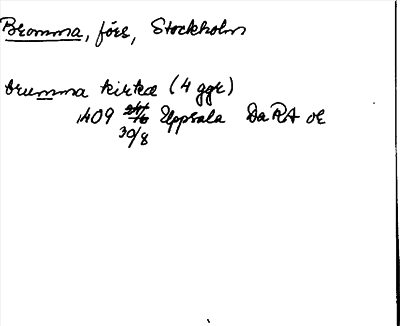 Bromma, förs, Stockholm
brumma kirkæ (4 ggr)
1409 Uppsala DaRA or
30/8